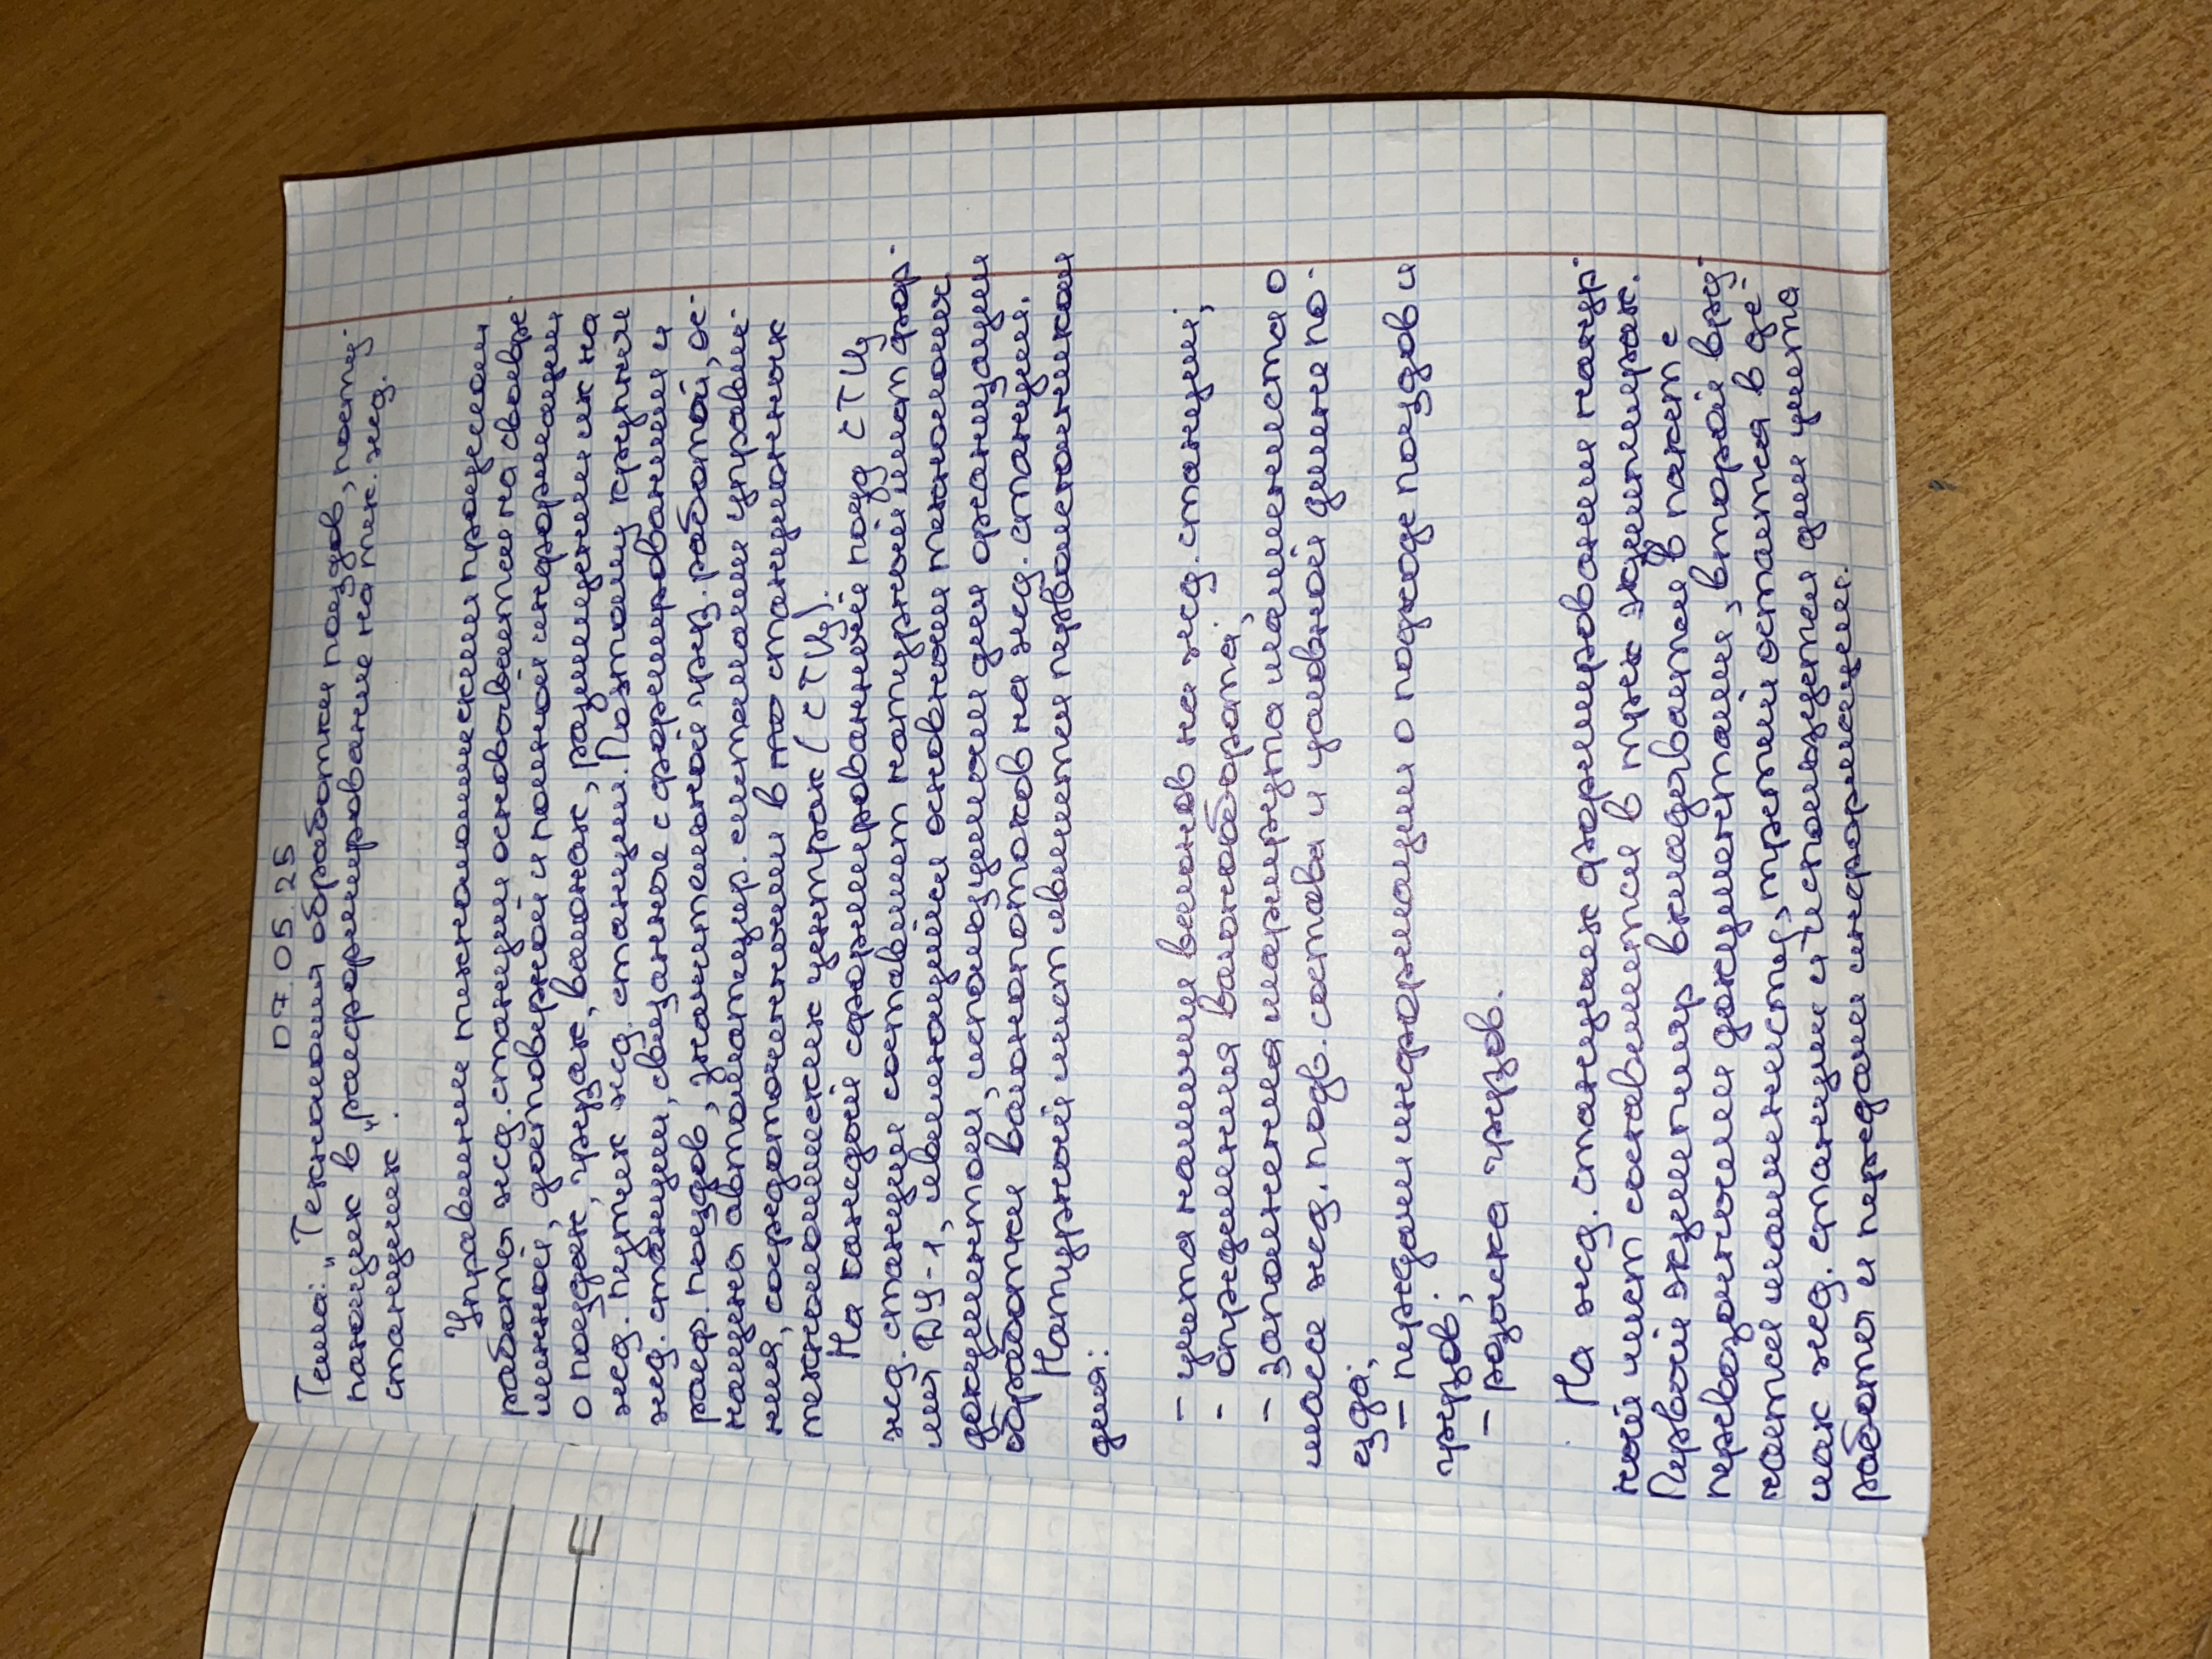 07.05.25
Тема: „Технология обработки поездов, посту-
пающих в „расформирование на тех. жд.
станциях.
Управление технологическим процессом
работы жд. станции основывается на своевре-
менной, достоверной и полной информации
о поездах, грузах, вагонах, размещении их на
жд. путях жд. станции. Поэтому крупные
жд. станции, связанные с формированием и
расф. поездов, значительной груз. работой, ос-
нащены автоматизир. системами управле-
ния, сосредоточенными в то станционных
технологических центрах (СТЦ).
На каждый сформированный поезд СТЦ
жд. станции составляет натурный лист фор-
мы ДУ-1, являющийся основным технологич.
документом, используемым для организации
обработки вагонопотоков на жд. станции.
Натурный лист является первоисточником
для:
- учета наличия вагонов на жд. станции;
- определения вагонооборота;
- заполнения маршрута машиниста о
массе жд. подв. состава и условной длине по-
езда;
- передачи информации о подходе поездов и
грузов;
- розыска грузов.
На жд. станциях формирования натур-
ный лист составляется в трех экземплярах.
Первый экземпляр вкладывается в пакет с
перевозочными документами, второй вру-
чается машинисту, третий остается в де-
лах жд. станции и используется для учета
работы и передачи информации.